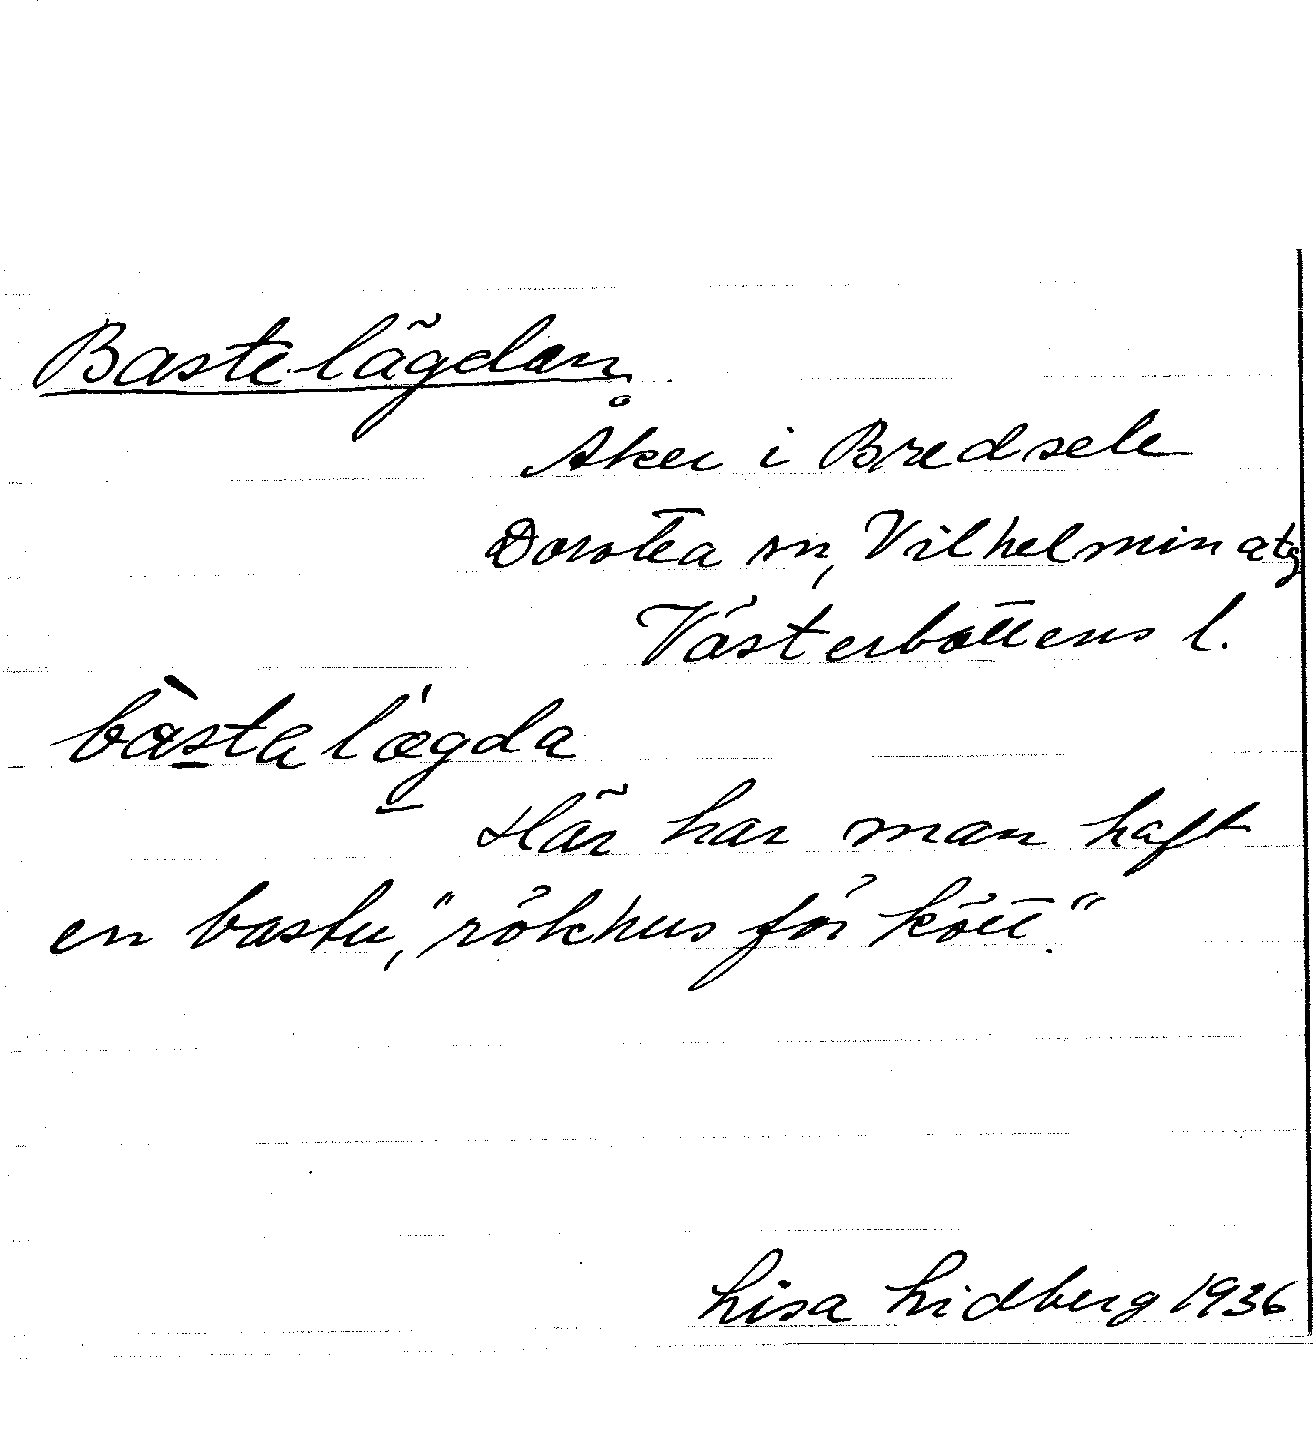 Bastelägdan
Åker i Bredsele
Dorotea sn, Vilhelmina tg
Västerbottens l.
bàsta lǽgda
Här har man haft
en bastu, "rökhus för kött".
Lisa Lidberg 1936